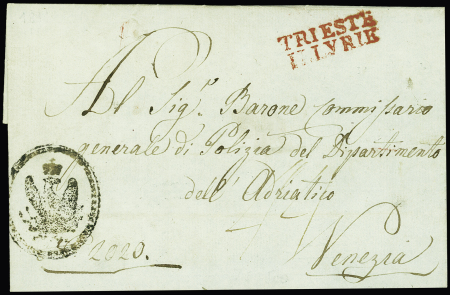 TRIESTE
ILLYRIE
Al Sigr. Barone Commissario
generale di Polizia del Dipartimento
dell'Adriatico
2020.
Venezia